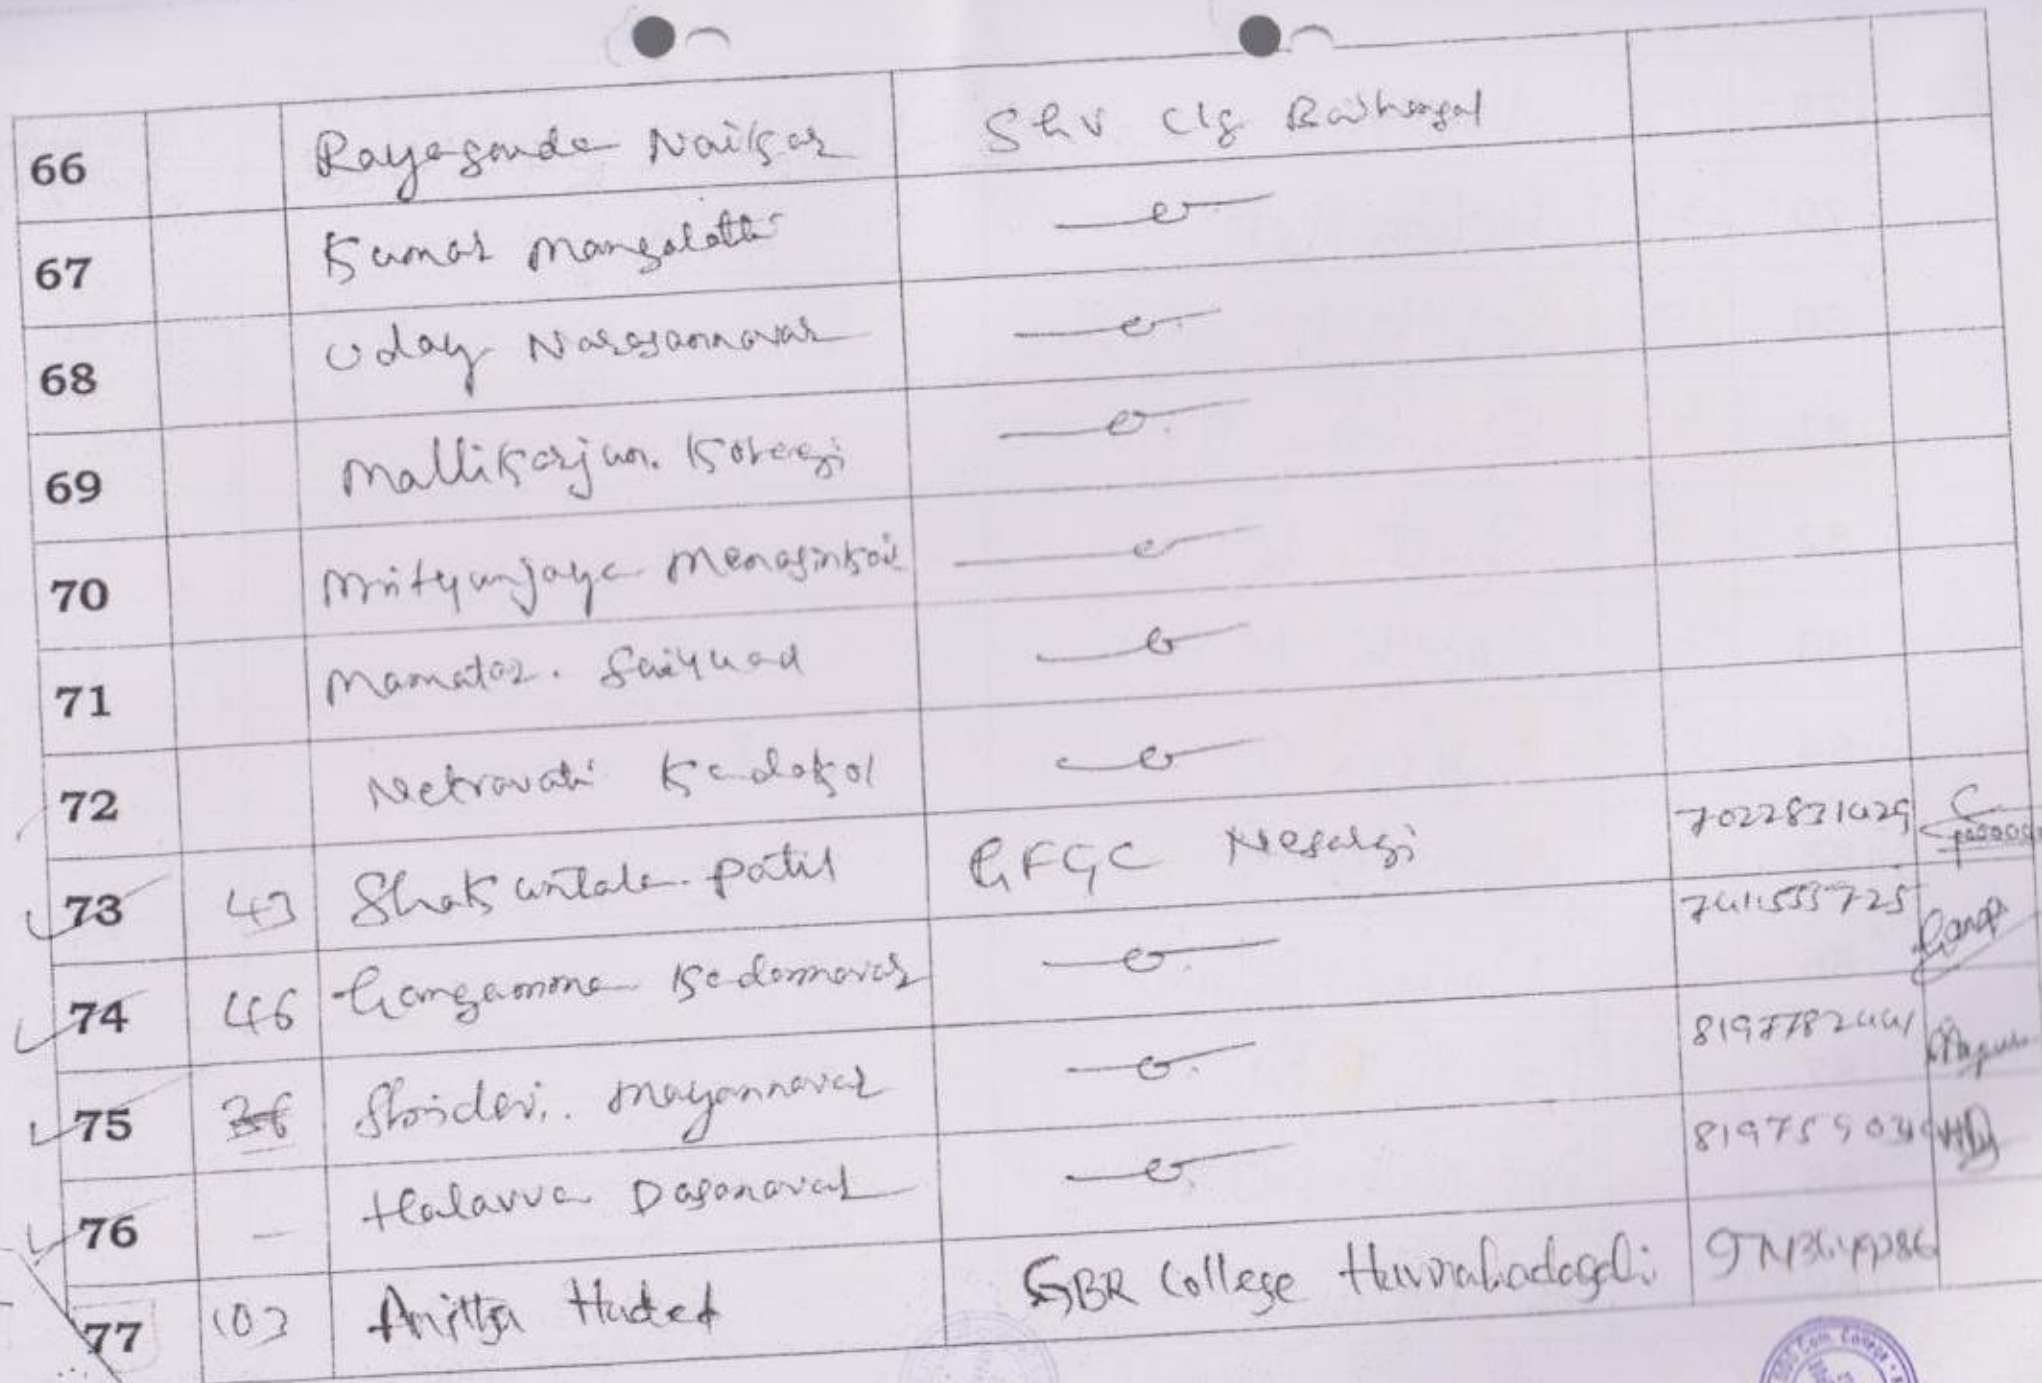 66 Rayagouda Naikar SKV Clg Bailhongal
67 Kumar Mangalatti —〃—
68 Uday Narasannavar —〃—
69 Mallikarjun. Koteagi —〃—
70 Mrityunjaya Menasinkai —〃—
71 Mamataz. Saiyyad —〃—
72 Netravati Kadakol —〃—
73 43 Shakuntala. Patil GFGC Nesargi
74 46 Gangamma Kadannavar —〃— 7411555725
75 36 Shridevi. Mayannavar —〃— 8197782441
76 — Halavva Dasanavar —〃—
77 103 Anitha Huded GBR College Huvinahadagali